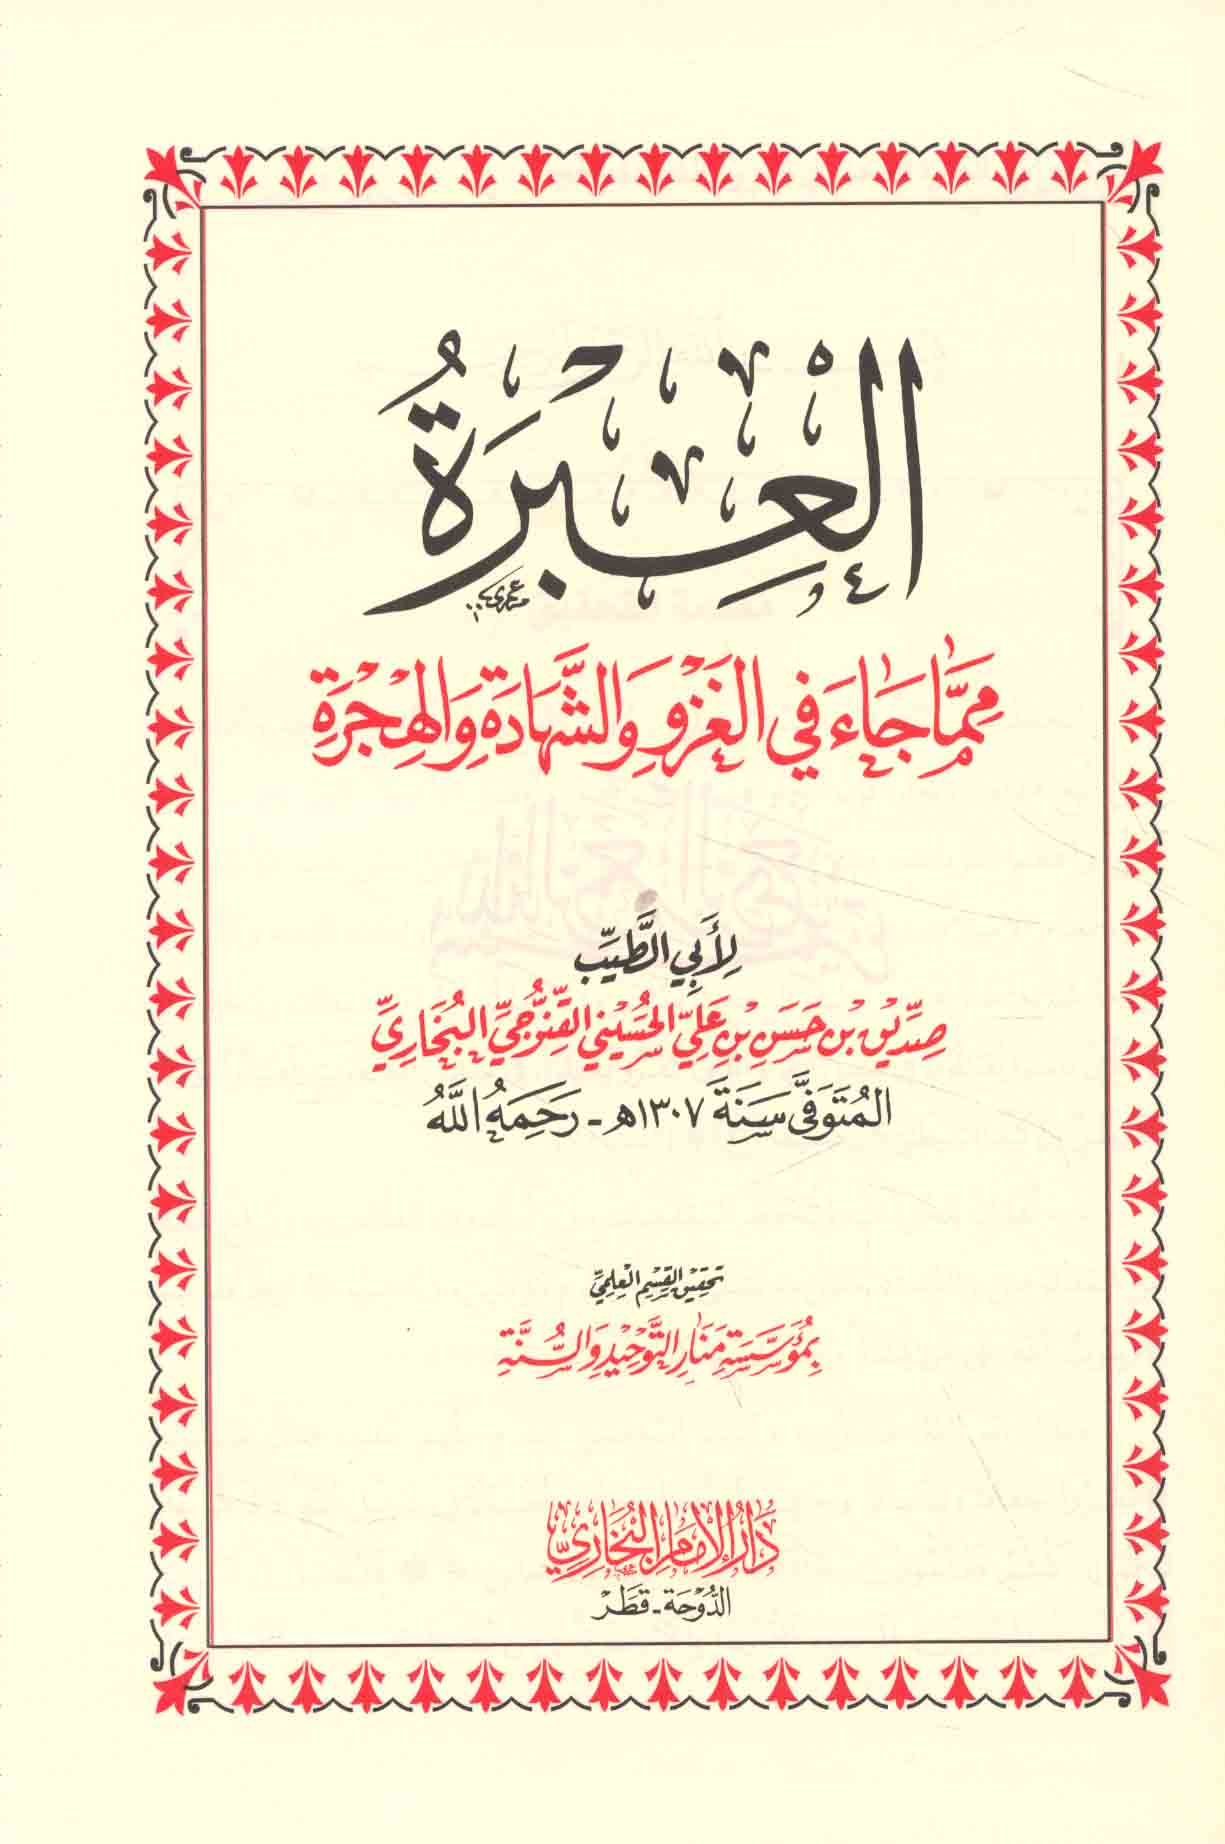 العِبْرَةُ
مِمَّا جَاءَ فِي الغَزْوِ وَالشَّهَادَةِ وَالهِجْرَةِ
لِأَبِي الطَّيِّبِ
صِدِّيق بْن حَسَن بْنِ عَلِيّ الحُسَيْنِي القِنَّوْجِيِّ البُخَارِيِّ
المُتَوَفَّى سَنَةَ ١٣٠٧هـ - رَحِمَهُ اللَّهُ
تحقيق القِسْمِ العِلْمِيِّ
بِمُؤَسَّسَةِ مَنَارِ التَّوْحِيْدِ وَالسُّنَّةِ
دَارُ الإِمَامِ البُخَارِيِّ
الدَّوْحَة - قَطَر